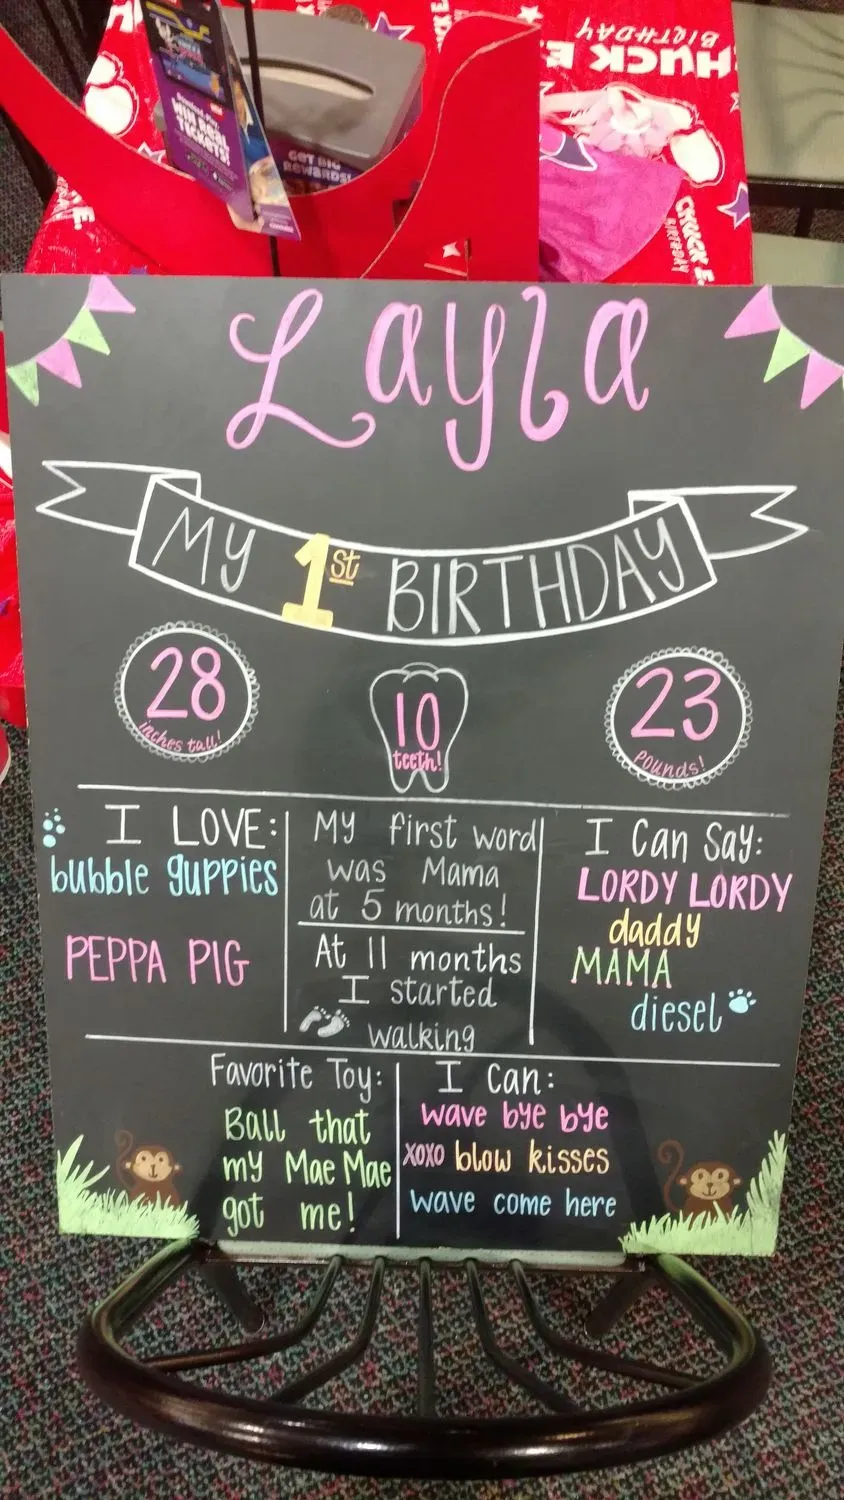 HUCK E.
BIRTHDAY
WIN BONUS
TICKETS!
GET BIG
REWARDS!
CHUCK E.
BIRTHDAY
Layla
MY 1st BIRTHDAY
28
inches tall!
10
teeth!
23
pounds!
I LOVE:
bubble guppies
PEPPA PIG
My first word
was Mama
at 5 months!
At 11 months
I started
walking
I Can Say:
LORDY LORDY
daddy
MAMA
diesel
Favorite Toy:
Ball that
my Mae Mae
got me!
I Can:
wave bye bye
xoxo blow kisses
wave come here